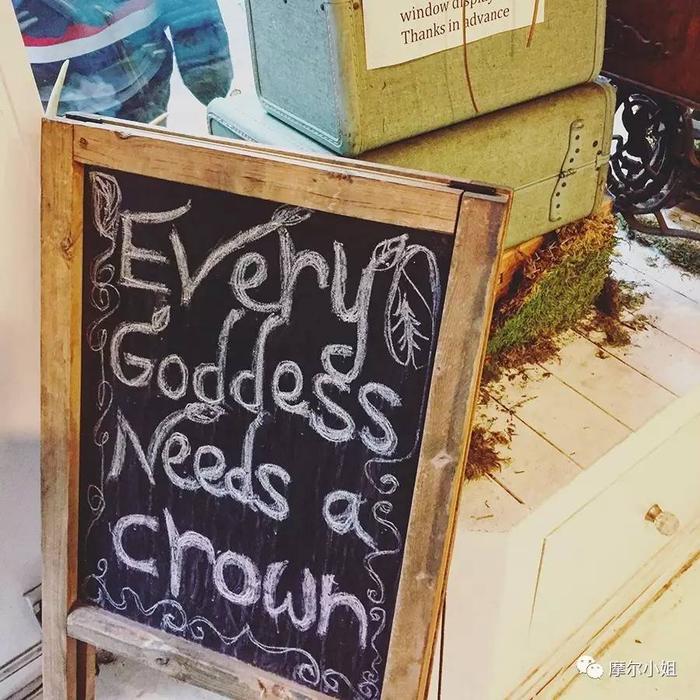 window display
Thanks in advance
Every
Goddess
Needs a
crown
摩尔小姐